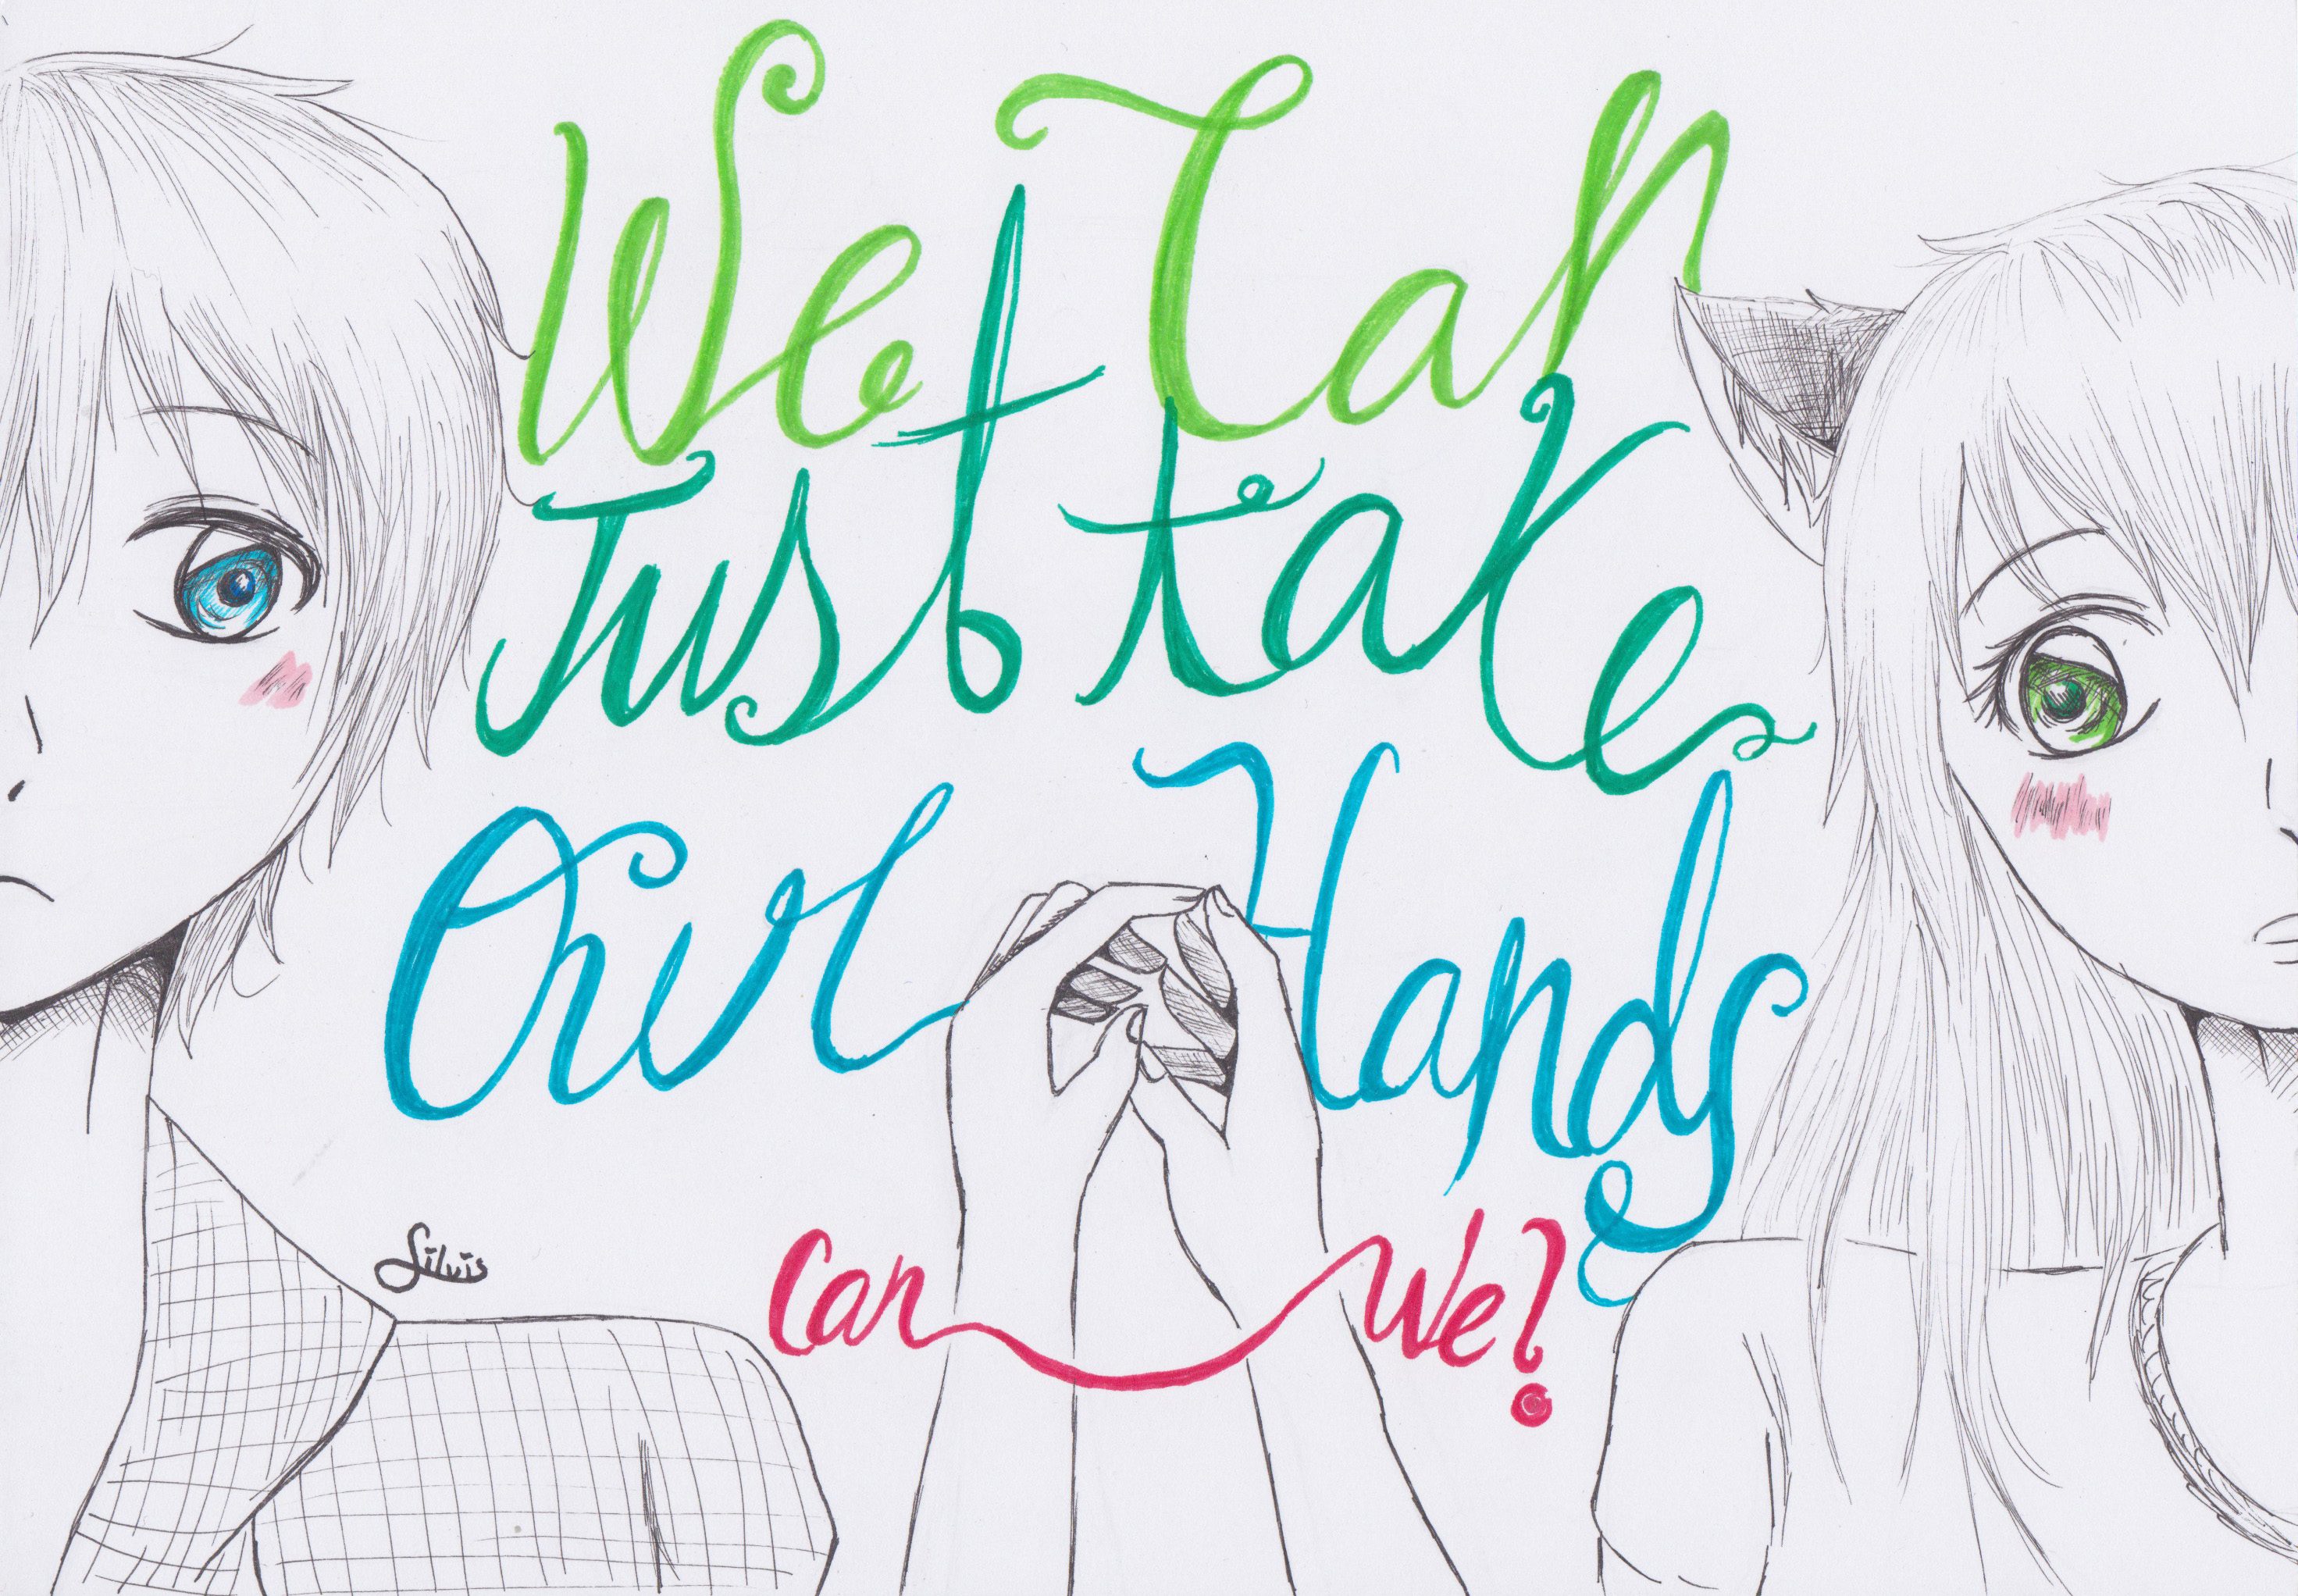 We Can
Just take
Our Hands
Can We?
Silvis